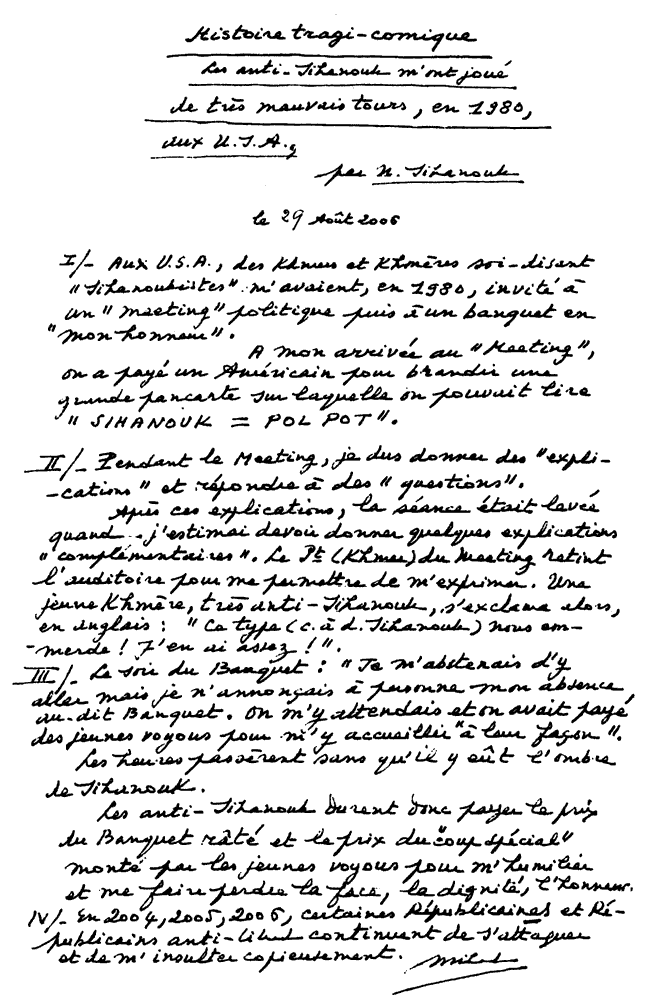 Histoire tragi-comique
Les anti-Sihanouk m'ont joué
de très mauvais tours, en 1980,
aux U.S.A.,
par N. Sihanouk
le 29 Août 2006
I/- Aux U.S.A., des Khmers et Khmères soi-disant
"Sihanoukistes" m'avaient, en 1980, invité à
un "meeting" politique puis à un banquet en
"mon honneur".
A mon arrivée au "Meeting",
on a payé un Américain pour brandir une
grande pancarte sur laquelle on pouvait lire
"SIHANOUK = POL POT".
II/- Pendant le Meeting, je dus donner des "expli-
-cations" et répondre à des "questions".
Après ces explications, la séance était levée
quand j'estimai devoir donner quelques explications
"complémentaires". Le Pt (Khmer) du Meeting retint
l'auditoire pour me permettre de m'exprimer. Une
jeune Khmère, très anti-Sihanouk, s'exclama alors,
en anglais : "Ce type (c. à d. Sihanouk) nous em-
-merde ! J'en ai assez !".
III/- Le soir du Banquet : "Je m'abstenais d'y
aller mais je n'annonçais à personne mon absence
au-dit Banquet. On m'y attendais et on avait payé
des jeunes voyous pour m'y accueillir "à leur façon".
Les heures passèrent sans qu'il y eût l'ombre
de Sihanouk.
Les anti-Sihanouk durent donc payer le prix
du Banquet râté et le prix du "coup spécial"
monté par les jeunes voyous pour m'humilier
et me faire perdre la face, la dignité, l'honneur.
IV/- En 2004, 2005, 2006, certaines Républicaines et Ré-
publicains anti- continuent de s'attaquer
et de m'insulter copieusement.